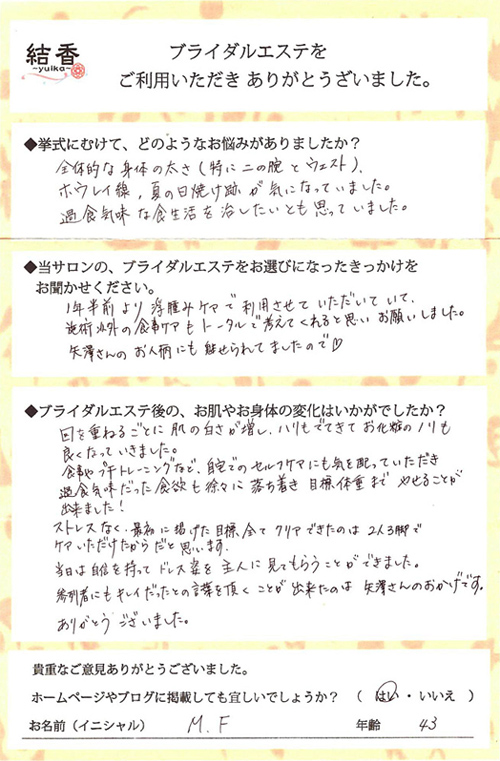 結香
~yuika~
ブライダルエステを
ご利用いただき ありがとうございました。
◆挙式にむけて、どのようなお悩みがありましたか？
全体的な身体の太さ(特に二の腕とウエスト)、
ホウレイ線、夏の日焼け跡が気になっていました。
過食気味な食生活を治したいとも思っていました。
◆当サロンの、ブライダルエステをお選びになったきっかけを
お聞かせください。
1年半前より浮腫みケアで利用させていただいていて、
施術以外の食事ケアもトータルで考えてくれると思いお願いしました。
矢澤さんのお人柄にも魅せられてましたので♡
◆ブライダルエステ後の、お肌やお身体の変化はいかがでしたか？
回を重ねるごとに肌の白さが増し、ハリもでてきてお化粧のノリも
良くなっていきました。
食事やプチトレーニングなど、自宅でのセルフケアにも気を配っていただき
過食気味だった食欲も徐々に落ち着き目標体重までやせることが
出来ました！
ストレスなく、最初に掲げた目標、全てクリアできたのは2人3脚で
ケアいただけたからだと思います。
当日は自信を持ってドレス姿を主人に見てもらうことができました。
参列者にもキレイだったとの言葉を頂くことが出来たのは矢澤さんのおかげです。
ありがとうございました。
貴重なご意見ありがとうございました。
ホームページやブログに掲載しても宜しいでしょうか？ （ はい ・ いいえ ）
お名前（イニシャル） M.F 年齢 43